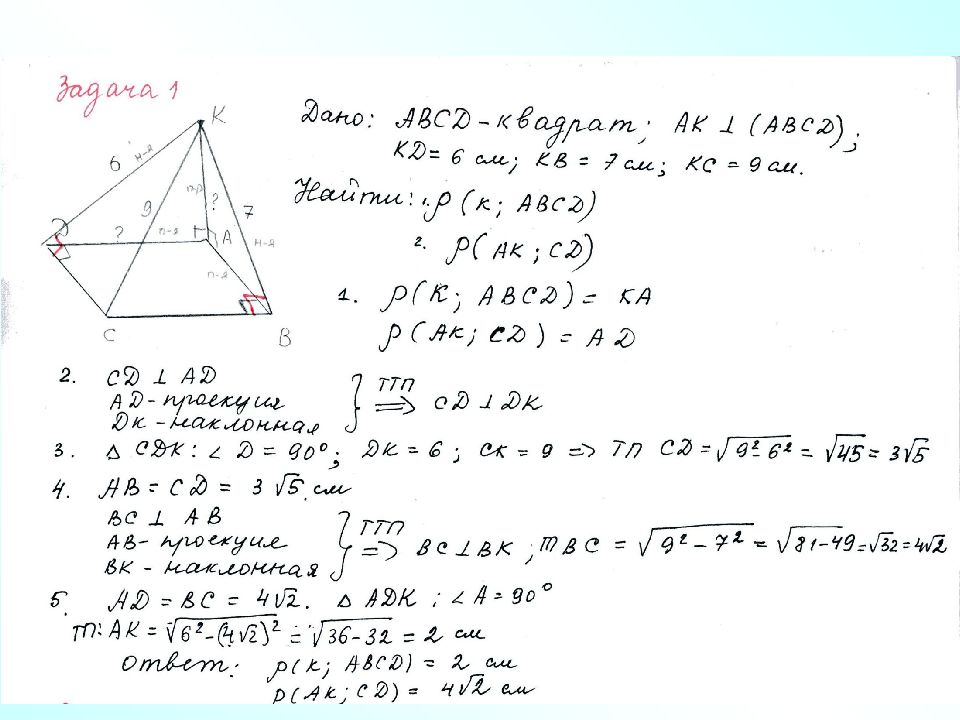 Задача 1
K
6 н-я
9 п-р ? 7
D ? п-я A н-я
п-я
C B
Дано: ABCD - квадрат; AK ⊥ (ABCD);
KD = 6 см; KB = 7 см; KC = 9 см.
Найти: 1. ρ(K; ABCD)
2. ρ(AK; CD)
1. ρ(K; ABCD) = KA
ρ(AK; CD) = AD
2. CD ⊥ AD
AD - проекция
DK - наклонная } ТТП => CD ⊥ DK
3. Δ CDK: ∠ D = 90°; DK = 6; CK = 9 => ТП CD = √9²-6² = √45 = 3√5
4. AB = CD = 3√5 см
BC ⊥ AB
AB - проекция
BK - наклонная } ТТП => BC ⊥ BK; ТП BC = √9² - 7² = √81-49 = √32 = 4√2
5. AD = BC = 4√2. Δ ADK; ∠ A = 90°
ТП: AK = √6²-(4√2)² = √36-32 = 2 см
Ответ: ρ(K; ABCD) = 2 см
ρ(AK; CD) = 4√2 см